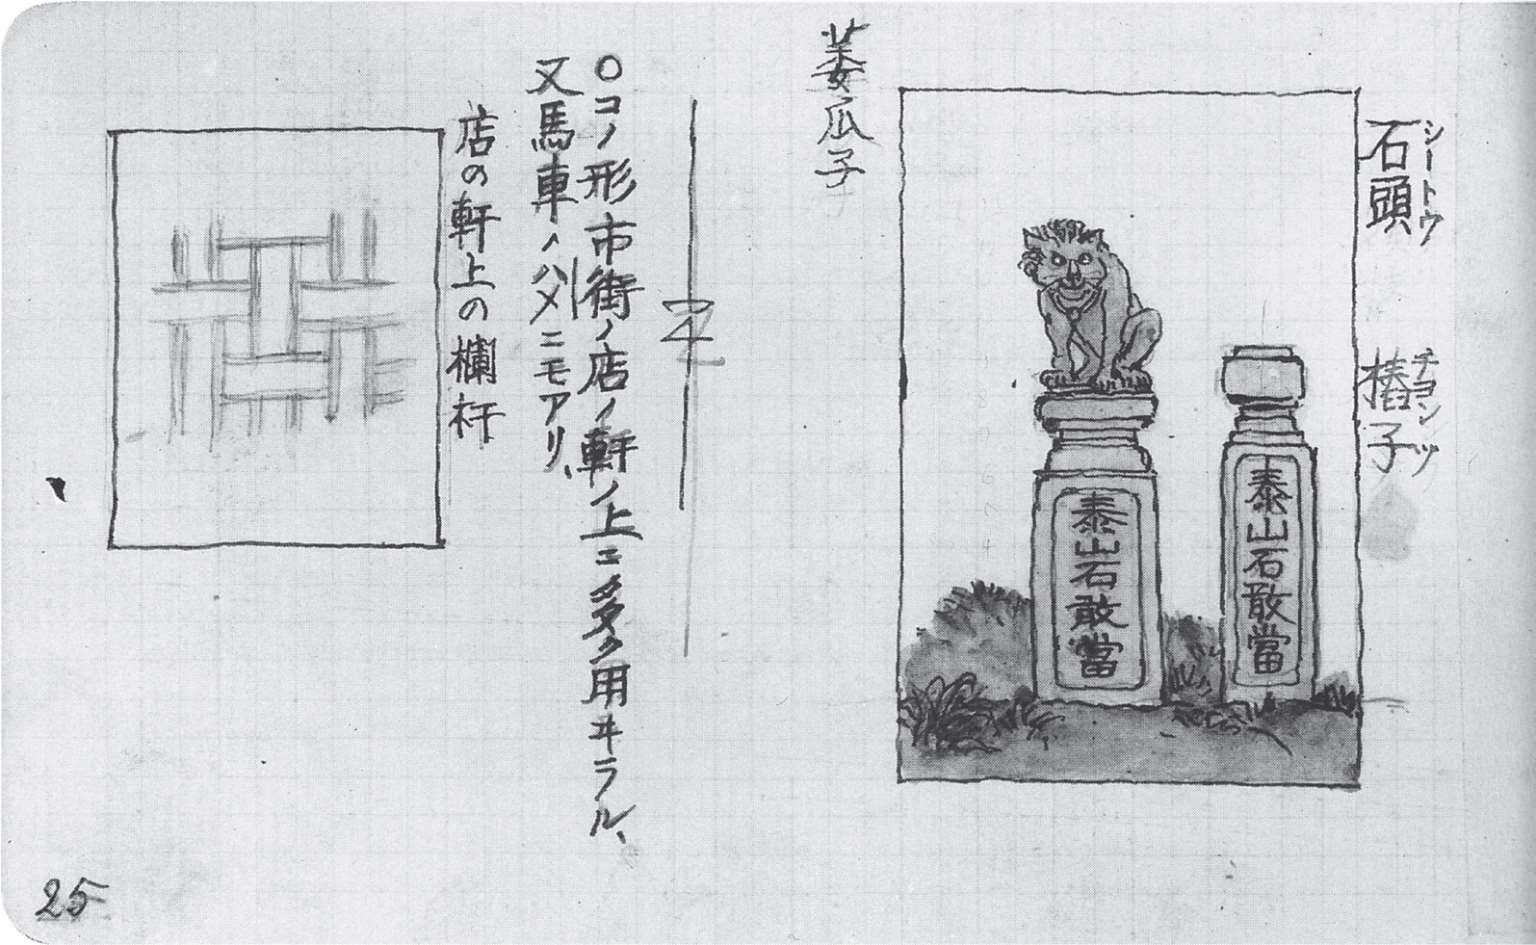 石頭
シートウ
樁子
チヨンツ
泰山石敢當
泰山石敢當
蒌瓜子
○コノ形市街ノ店ノ軒ノ上ニ多ク用ヰラル、
又馬車ノハメニモアリ、
店の軒上の欄杆
25